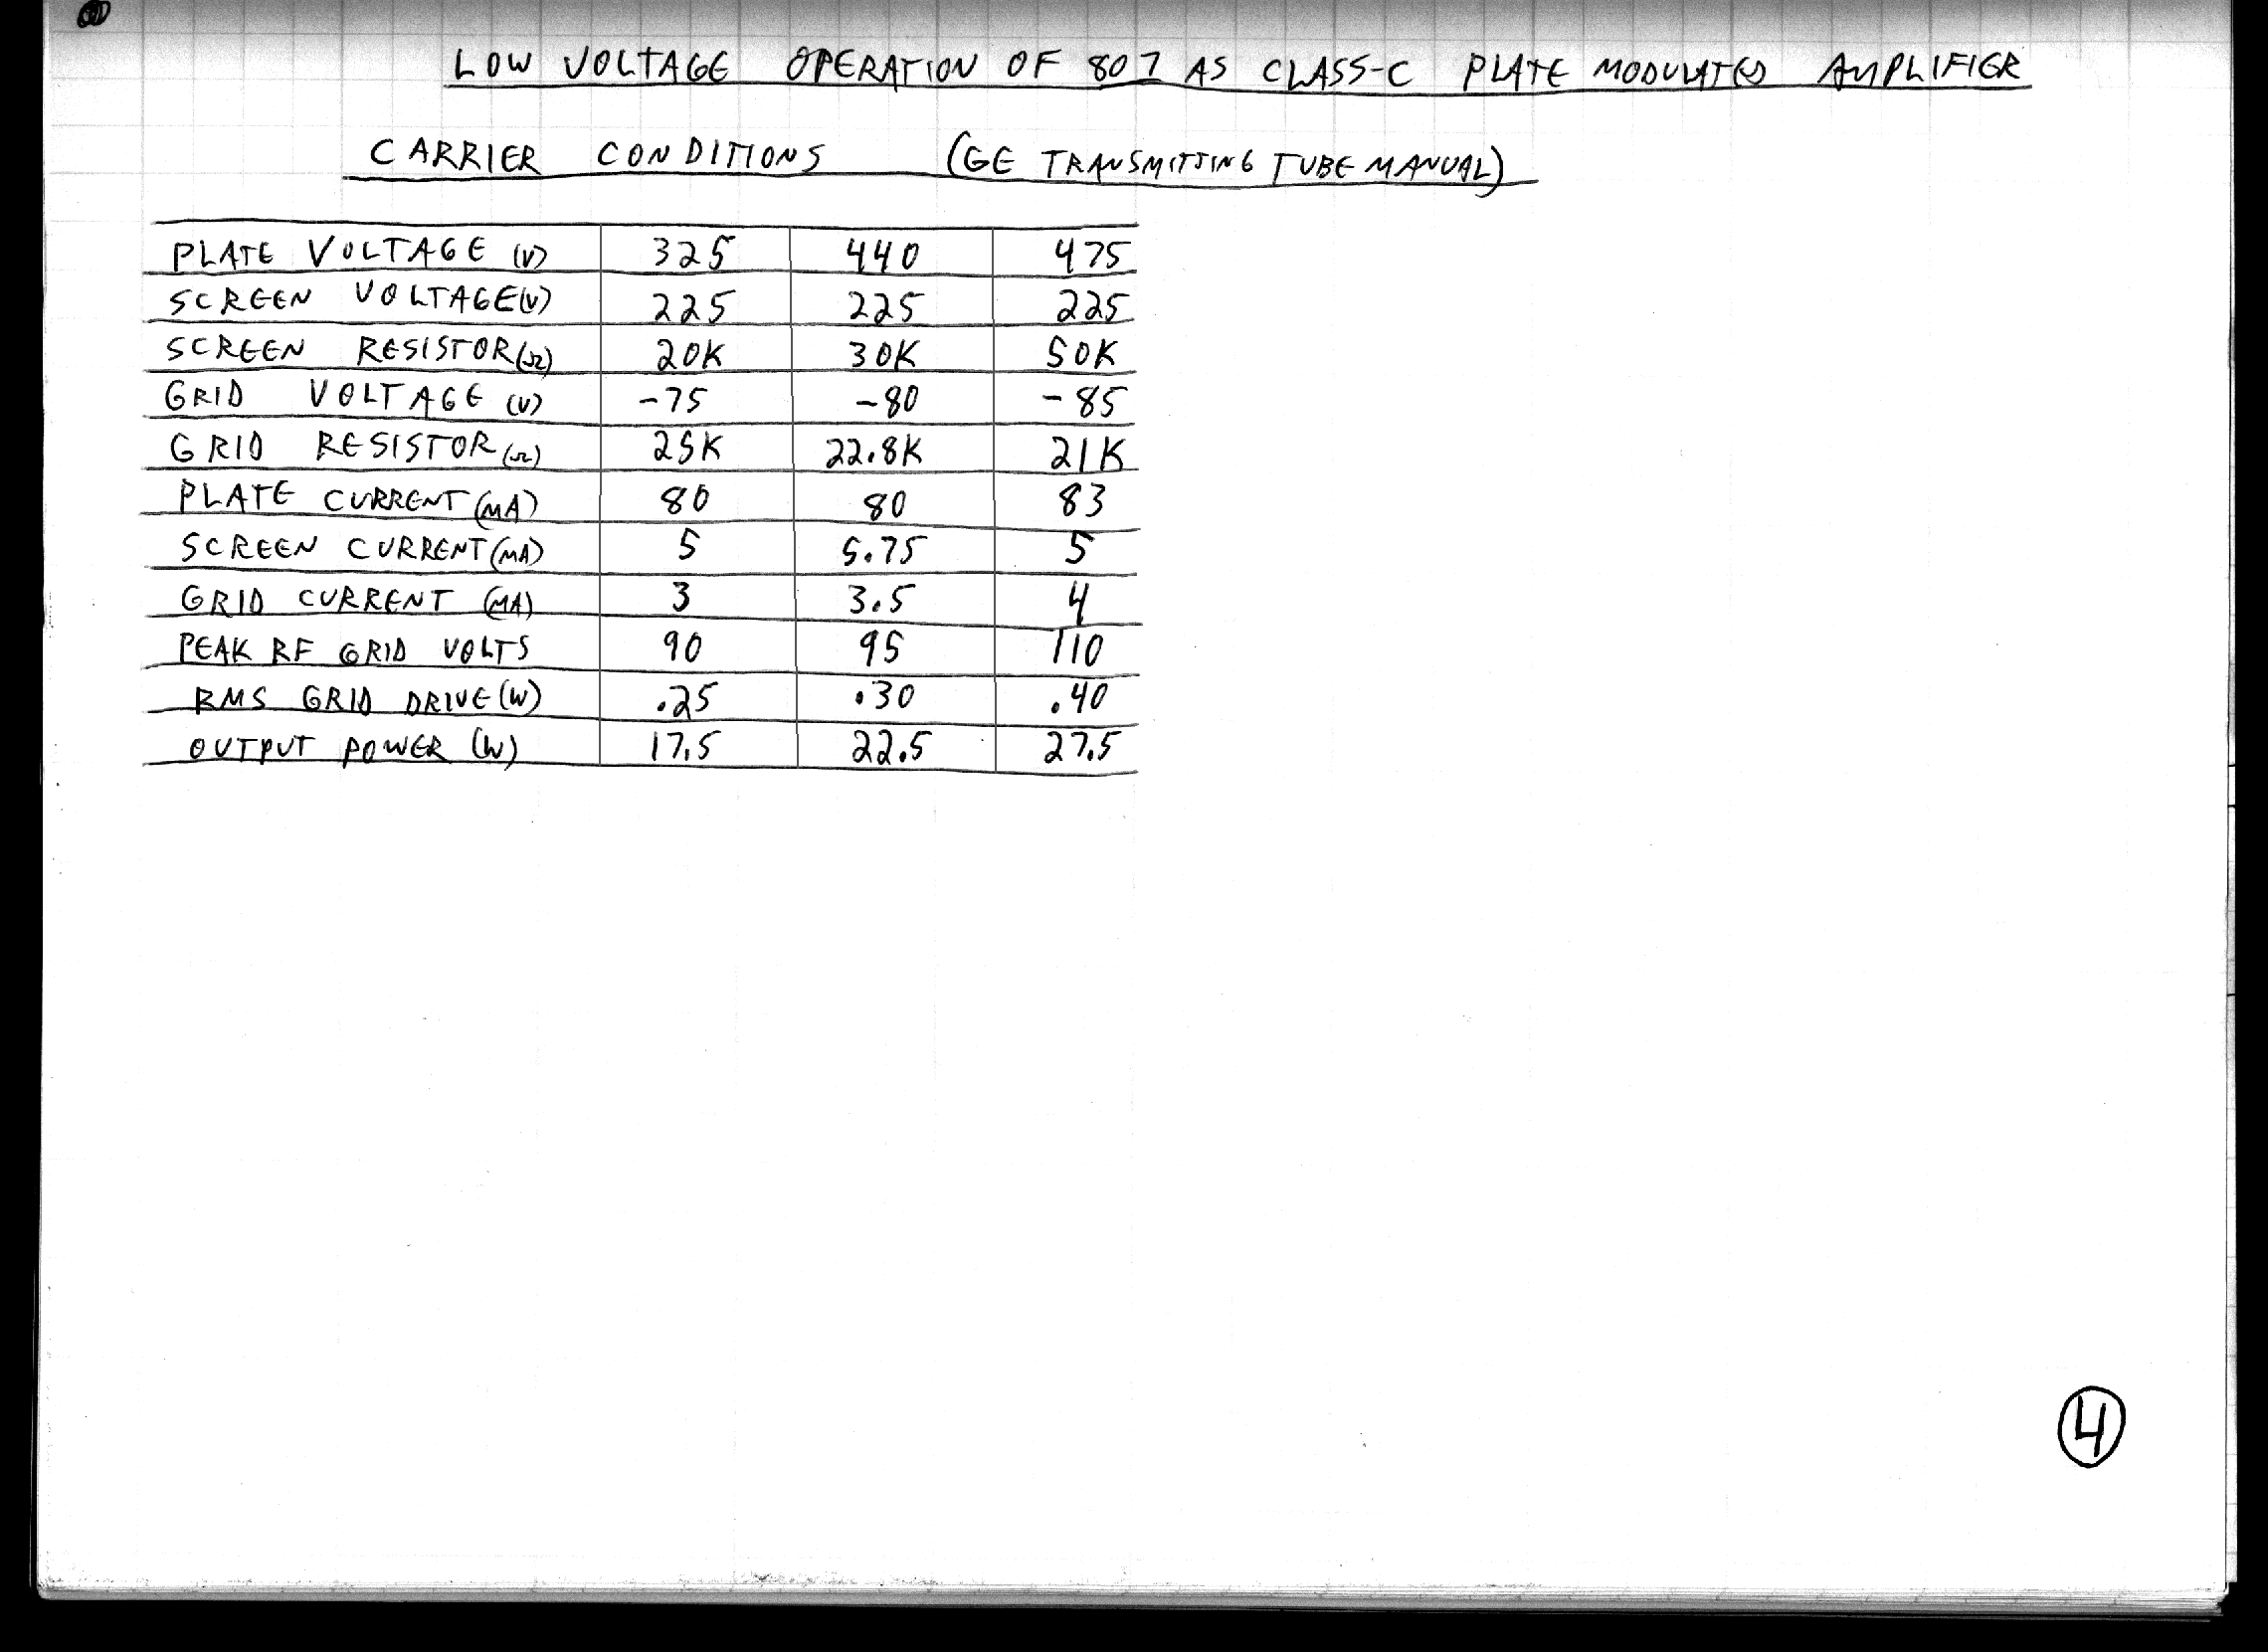 LOW VOLTAGE OPERATION OF 807 AS CLASS-C PLATE MODULATED AMPLIFIER
CARRIER CONDITIONS (GE TRANSMITTING TUBE MANUAL)
PLATE VOLTAGE (V) 325 440 475
SCREEN VOLTAGE(V) 225 225 225
SCREEN RESISTOR(Ω) 20K 30K 50K
GRID VOLTAGE (V) -75 -80 -85
GRID RESISTOR(Ω) 25K 22.8K 21K
PLATE CURRENT(MA) 80 80 83
SCREEN CURRENT(MA) 5 5.75 5
GRID CURRENT (MA) 3 3.5 4
PEAK RF GRID VOLTS 90 95 110
RMS GRID DRIVE(W) .25 .30 .40
OUTPUT POWER (W) 17.5 22.5 27.5
4